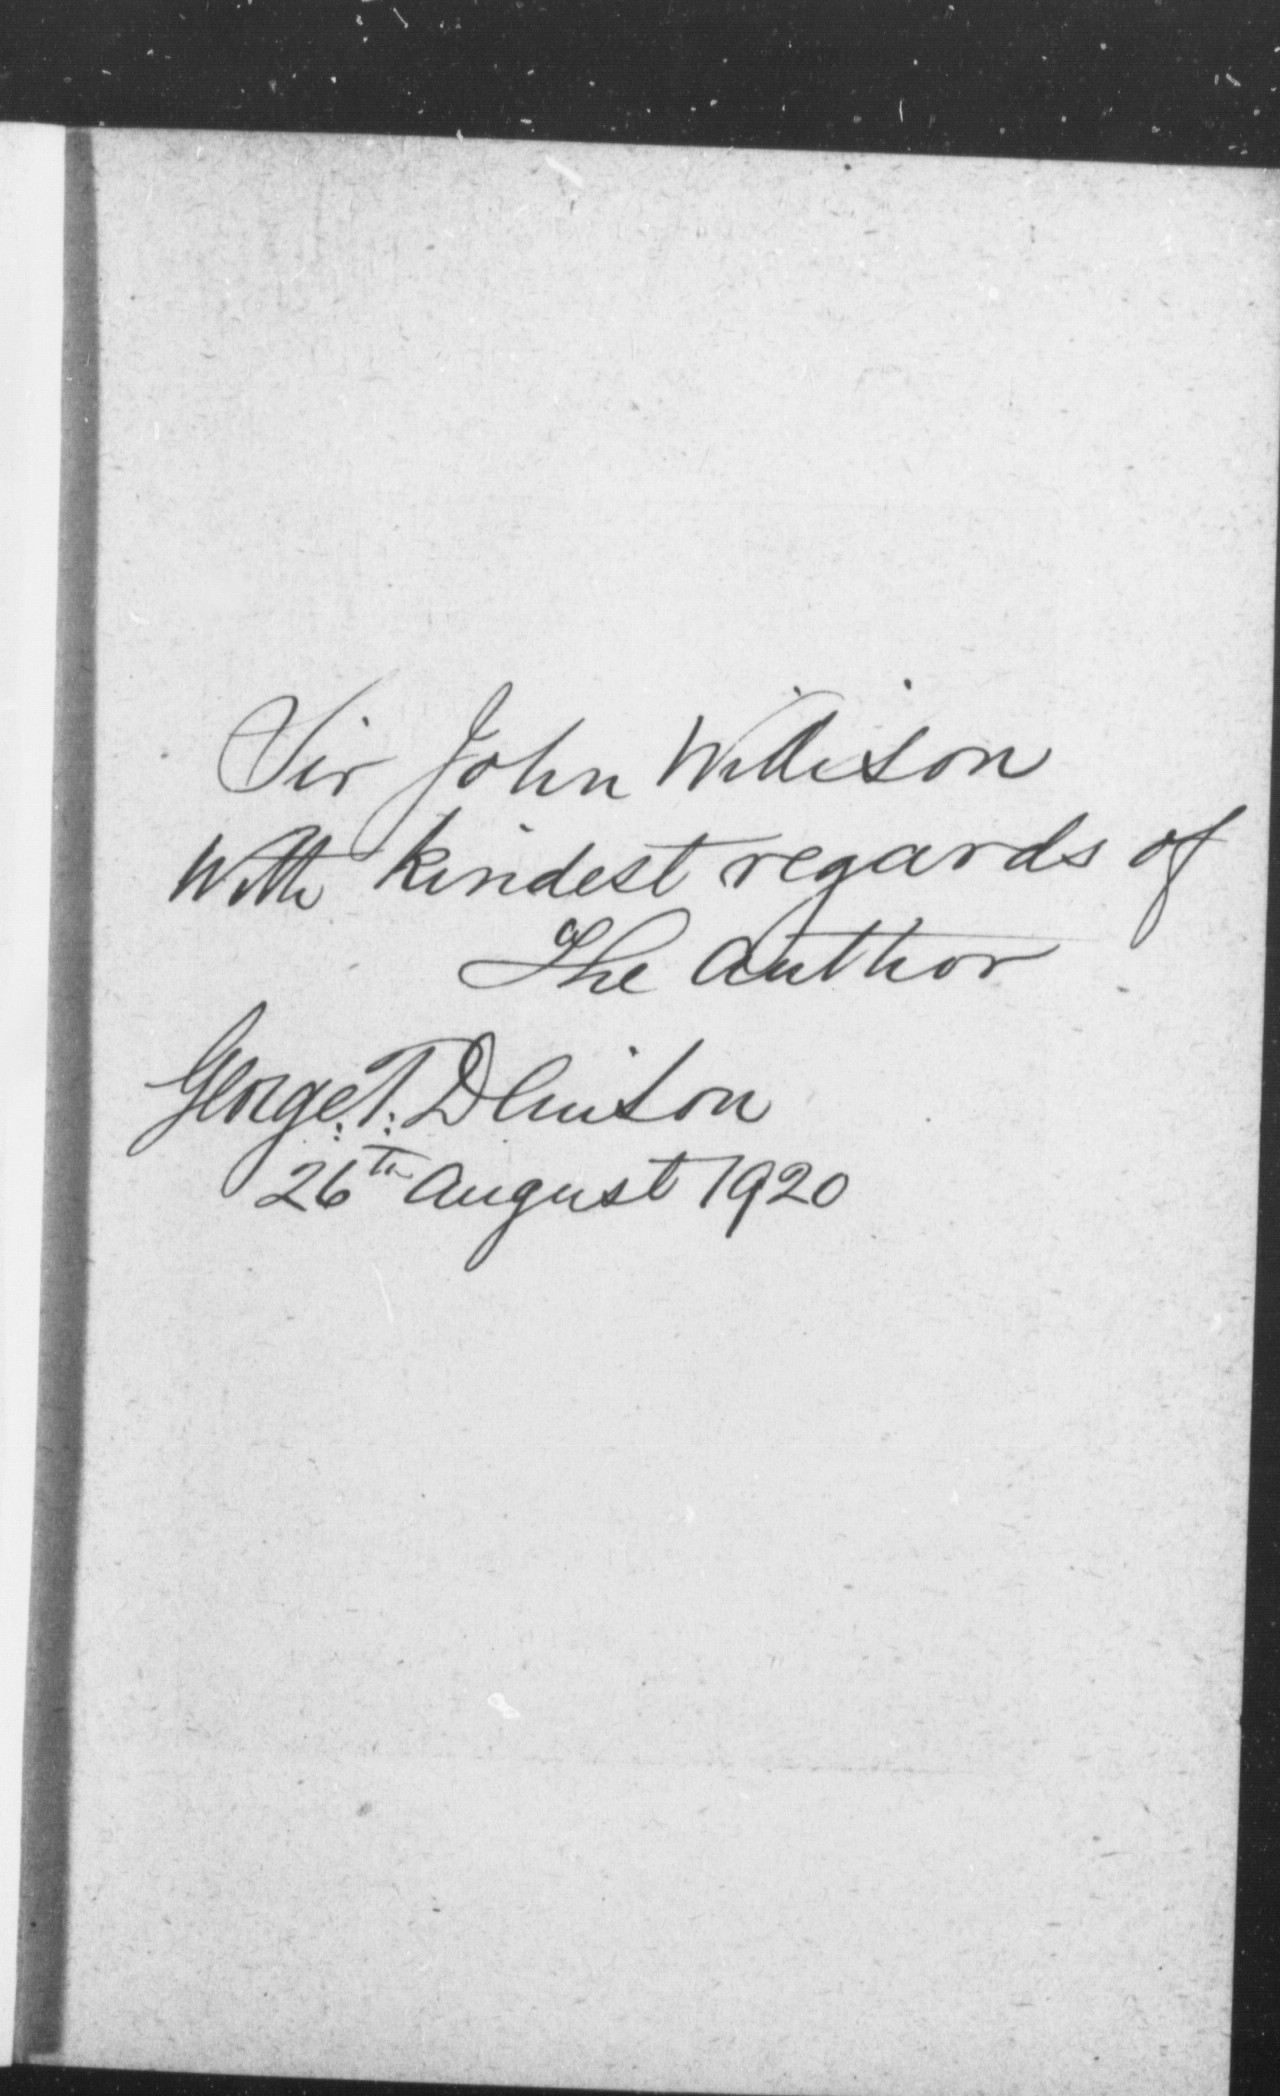 Sir John Willison
With kindest regards of
The Author
George. T. Denison
26th August 1920